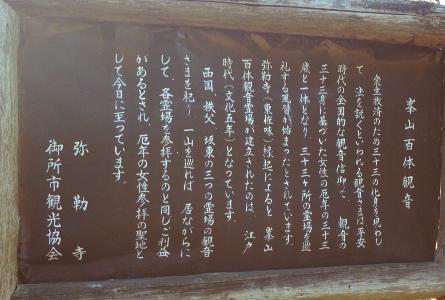 峯山百体観音
衆生救済のため三十三の化身を現わし
て、法を説くといわれる観音さまは平安
時代の全国的な観音信仰で、観音の
三十三身に基づいた女性の厄年の三十三
歳と一体となり、三十三ヶ所の霊場を巡
礼する風習が始まったとされています。
弥勒寺縁起によると、峯山
百体観音霊場が建立されたのは、江戸
時代(文化五年)となっています。
西国、秩父、坂東の三つの霊場の観音
さまを祀り、一山を巡れば、居ながらに
して、各霊場を参拝するのと同じご利益
があるとされ、厄年の女性参拝の聖地と
して今日に至っています。
弥勒寺
御所市観光協会